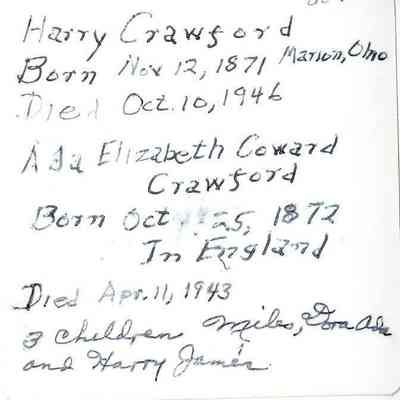 Harry Crawford
Born Nov 12, 1871 Marion, Ohio
Died Oct. 10, 1946
Ada Elizabeth Coward
Crawford
Born Oct 25, 1872
In England
Died Apr. 11, 1943
3 children Miles, Dora Ada
and Harry James.